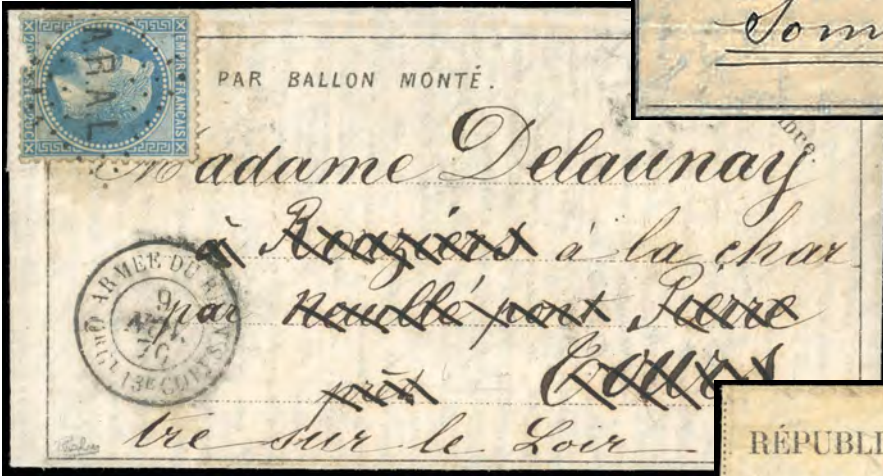 Som
EMPIRE FRANÇAIS
ARAL
PAR BALLON MONTÉ.
Madame Delaunay
à Rouziers à la char
par Neuillé pont Pierre
près Tours
tre sur le Loir
ARMÉE DU RHIN
9
13E CORPS
RÉPUBLI